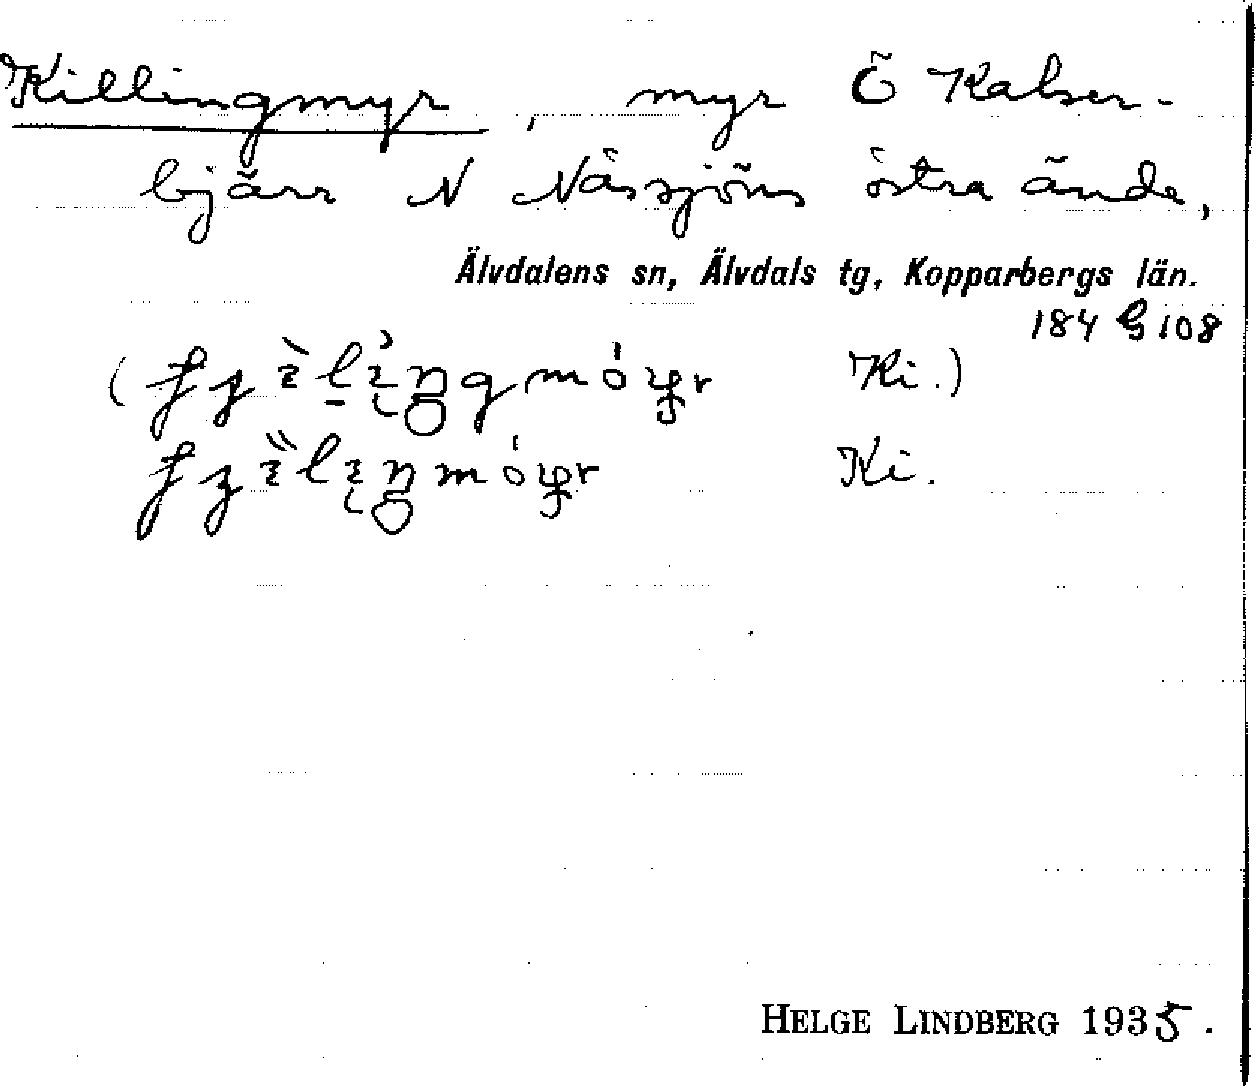 Killingmyr, myr Ö Kalser-
bjärr N Nässjöns östra ände,
Älvdalens sn, Älvdals tg, Kopparbergs län.
184 G 108
Ki.)
Ki.
HELGE LINDBERG 1935.